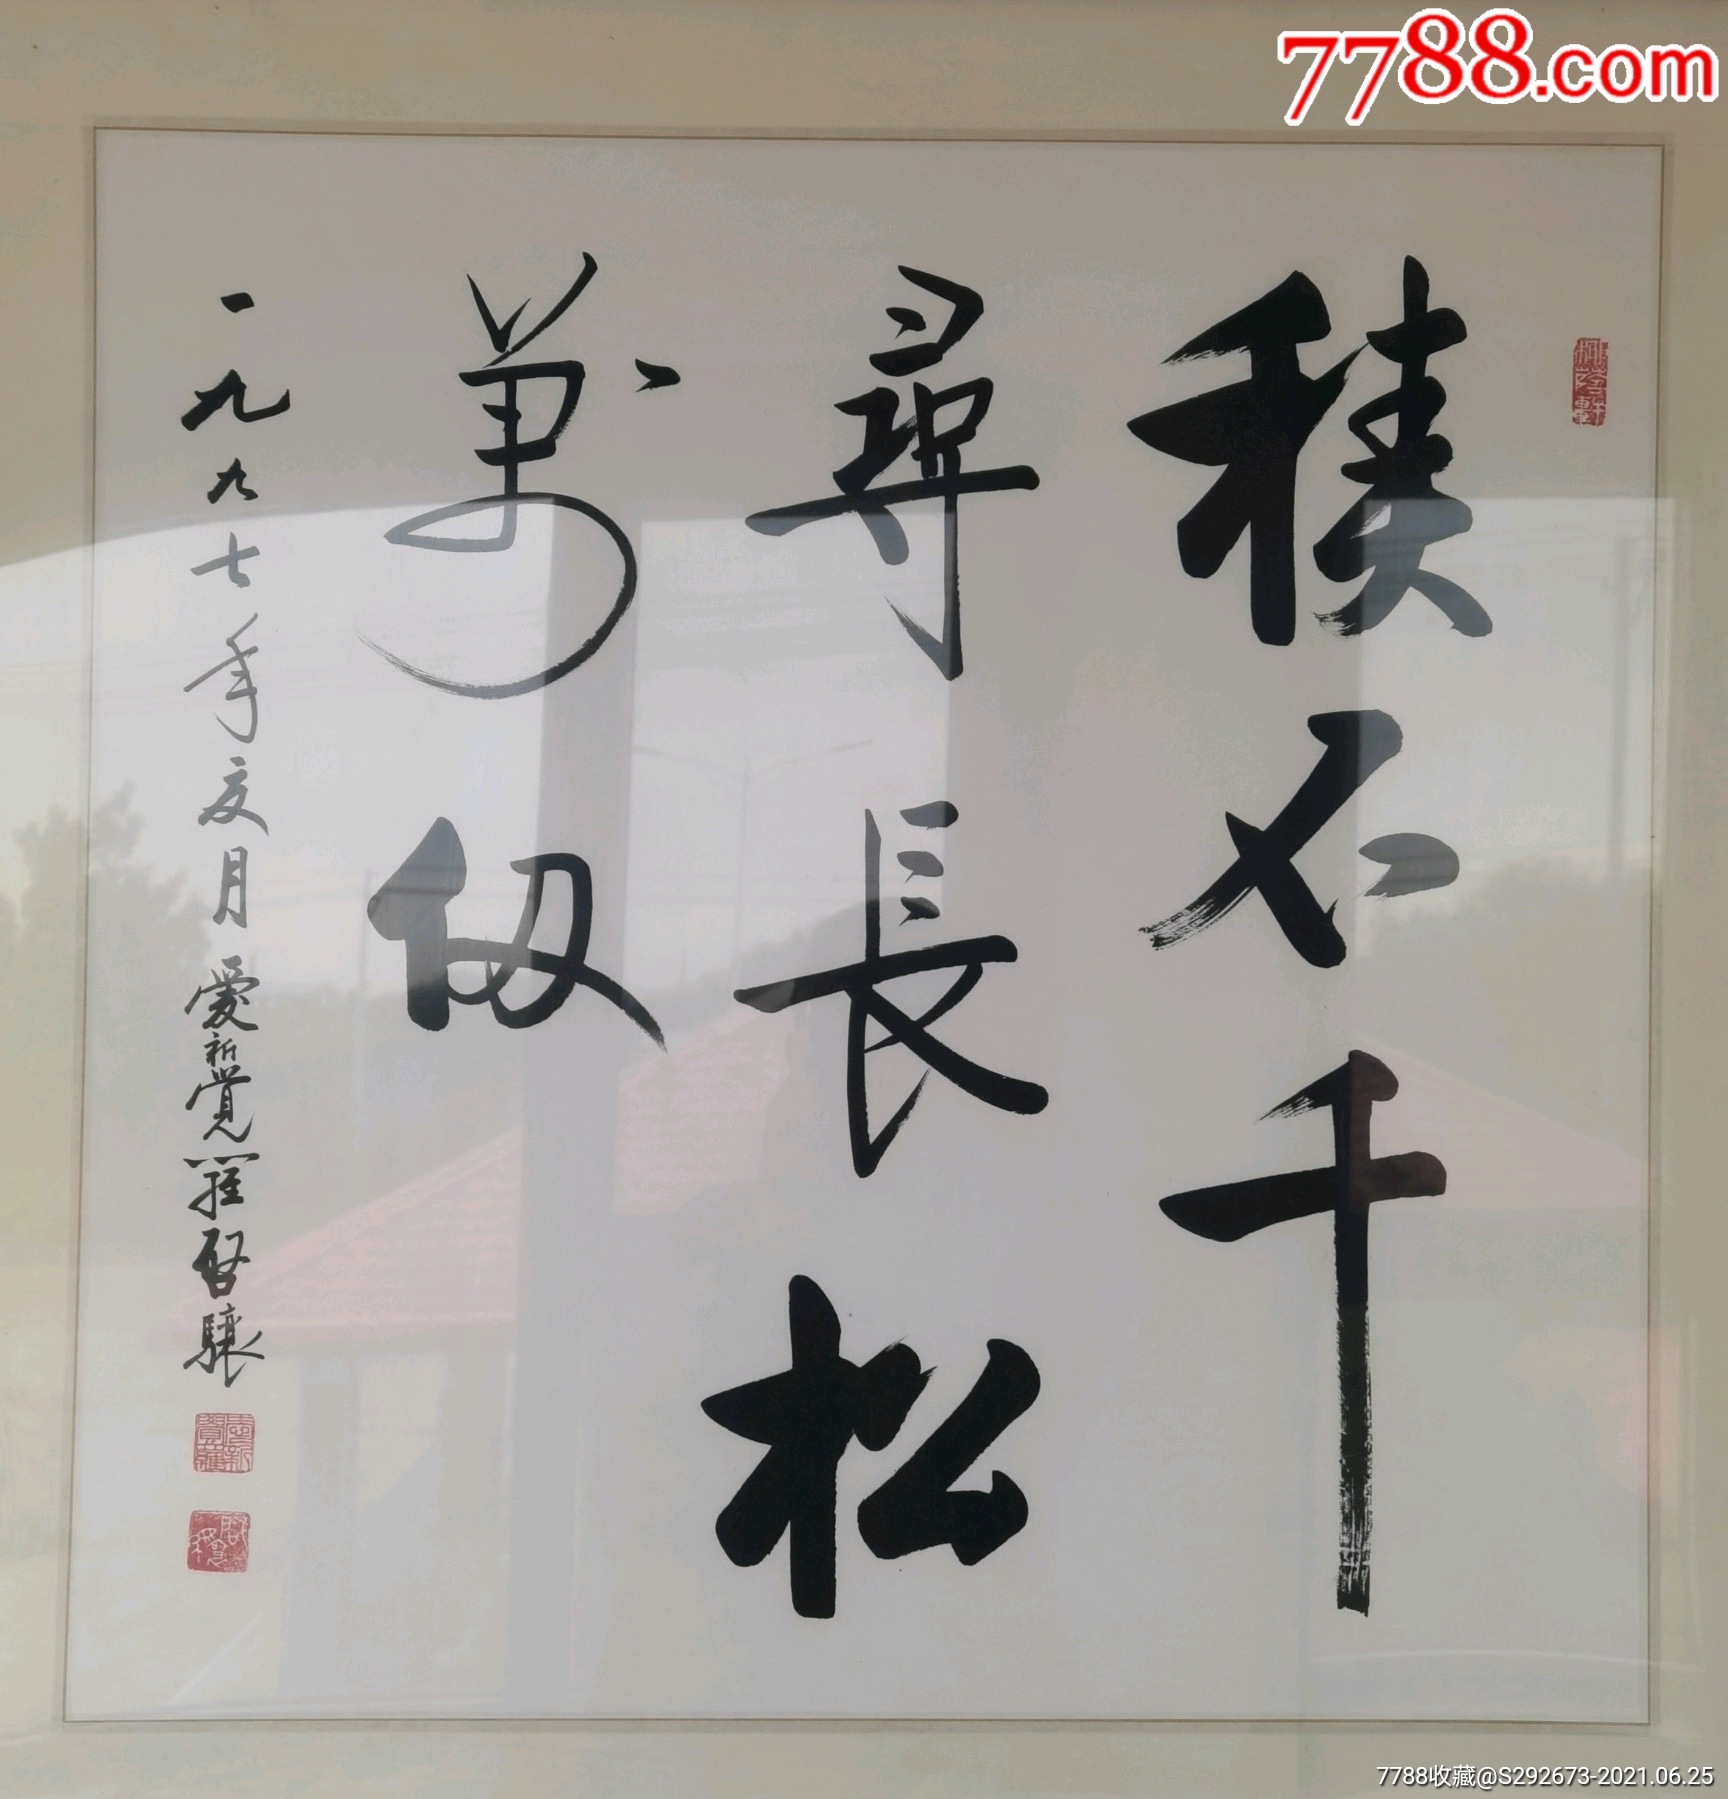 7788.com
積石千
尋長松
萬仞
一九九七年夏月愛新覺羅啓驤
7788收藏@S292673-2021.06.25